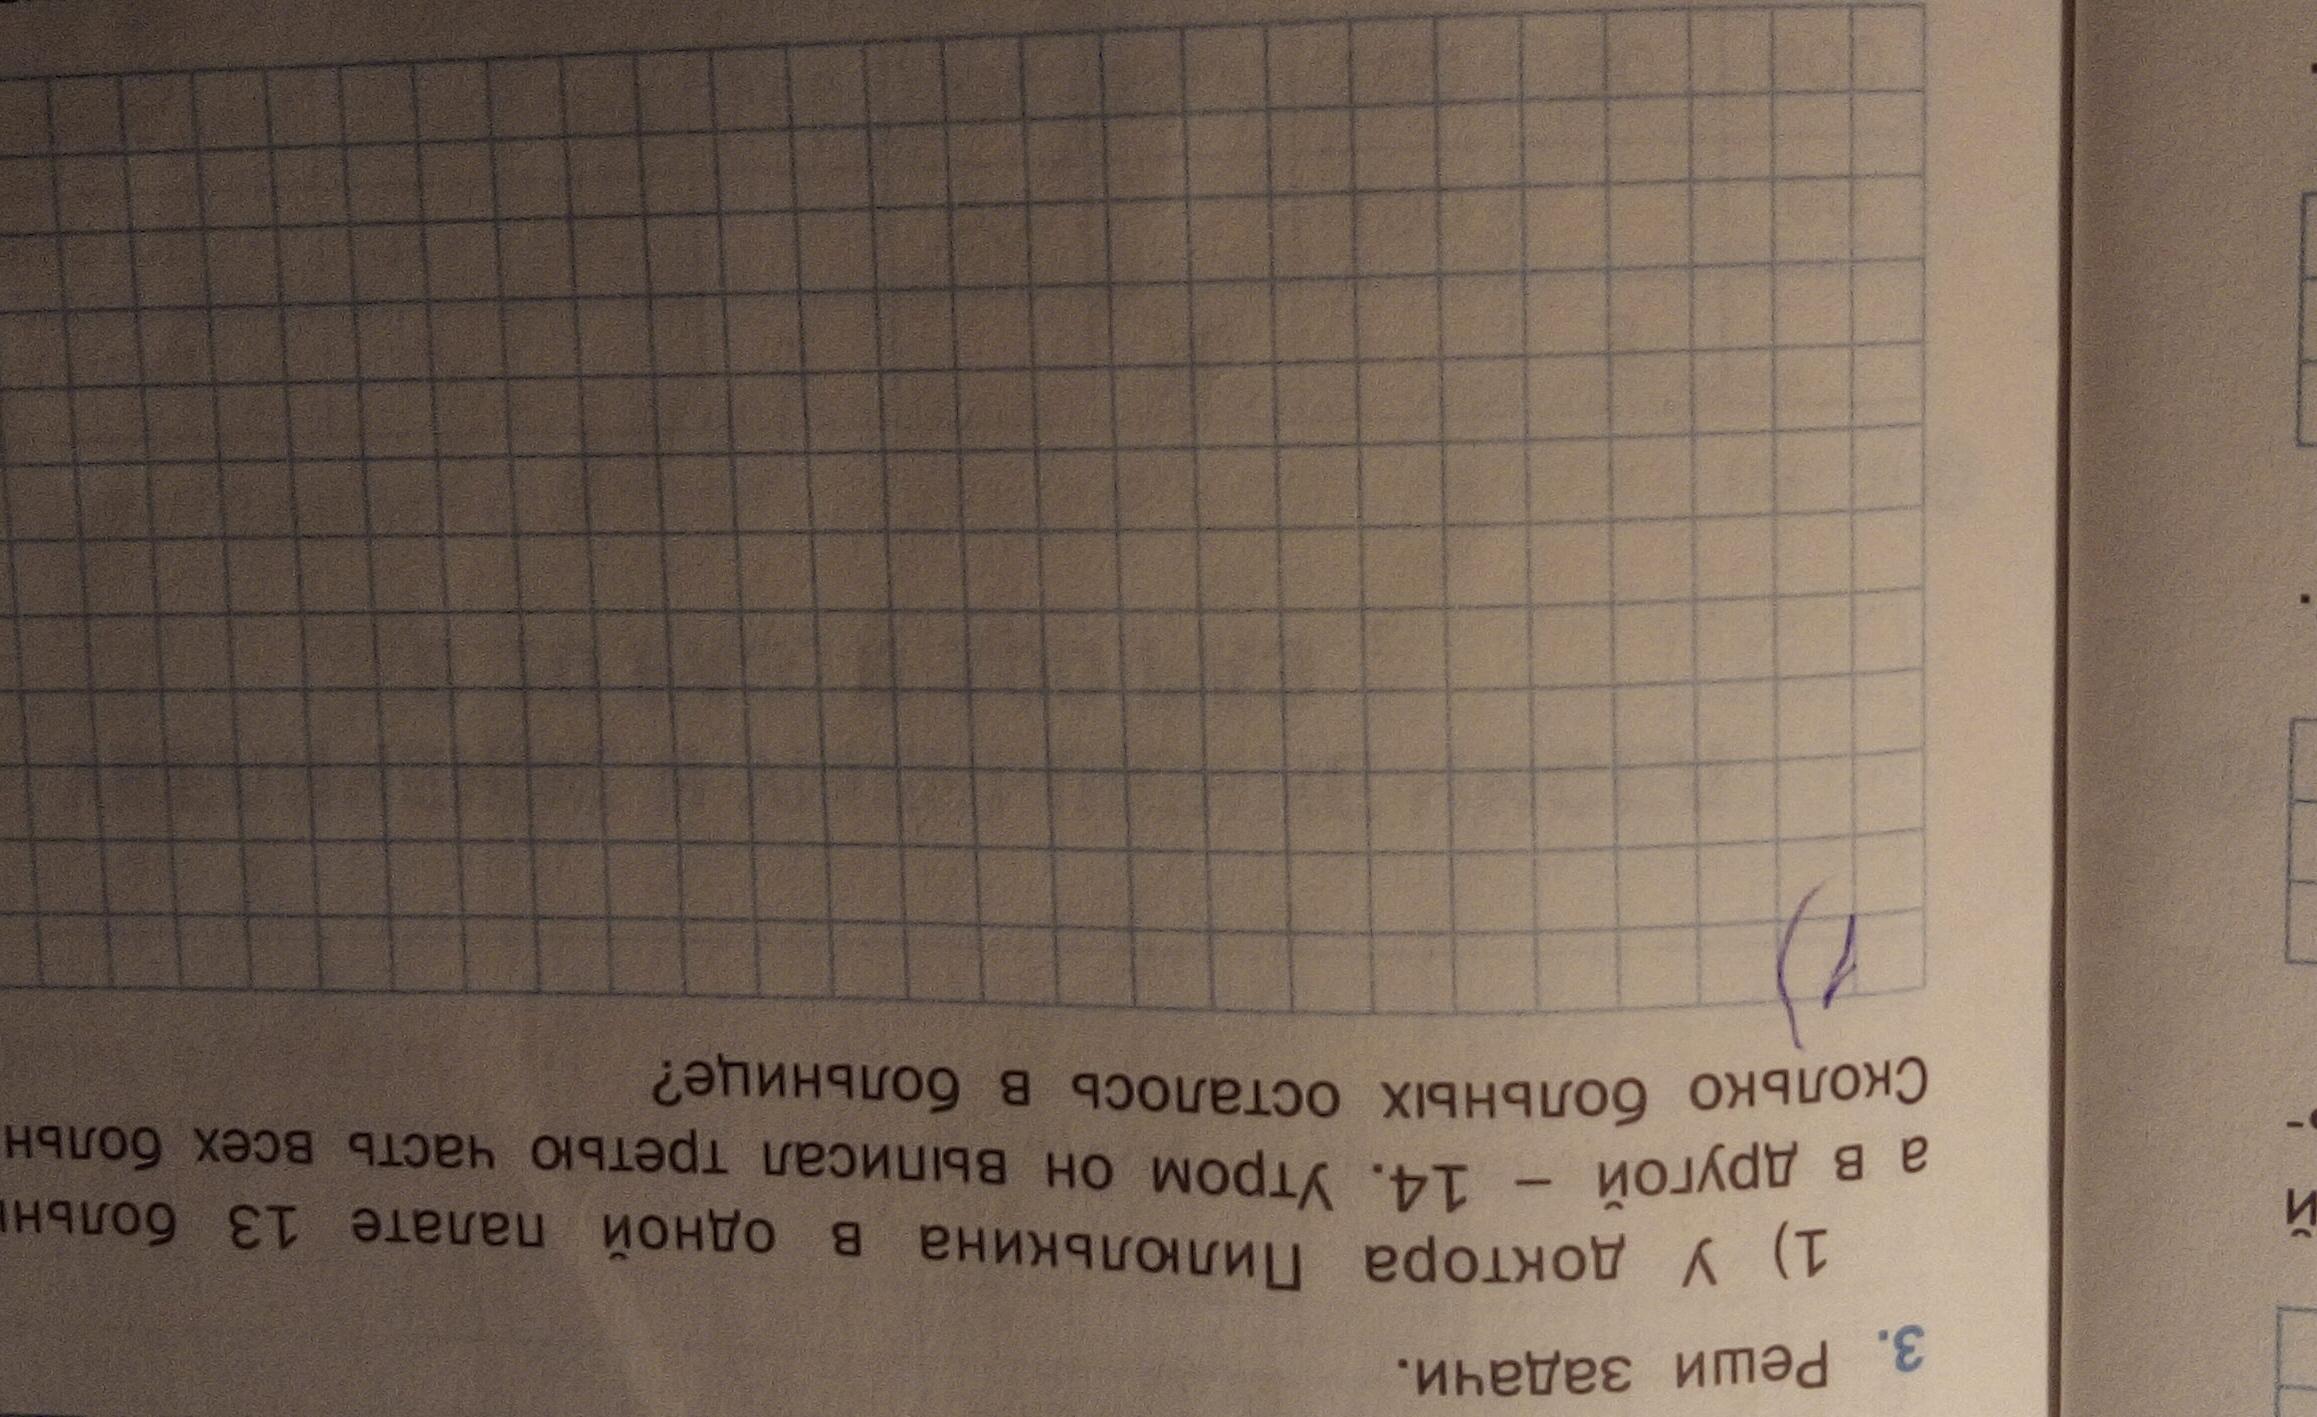 3. Реши задачи.
1) У доктора Пилюлькина в одной палате 13 больн
а в другой – 14. Утром он выписал третью часть всех больн
Сколько больных осталось в больнице?
1)
й